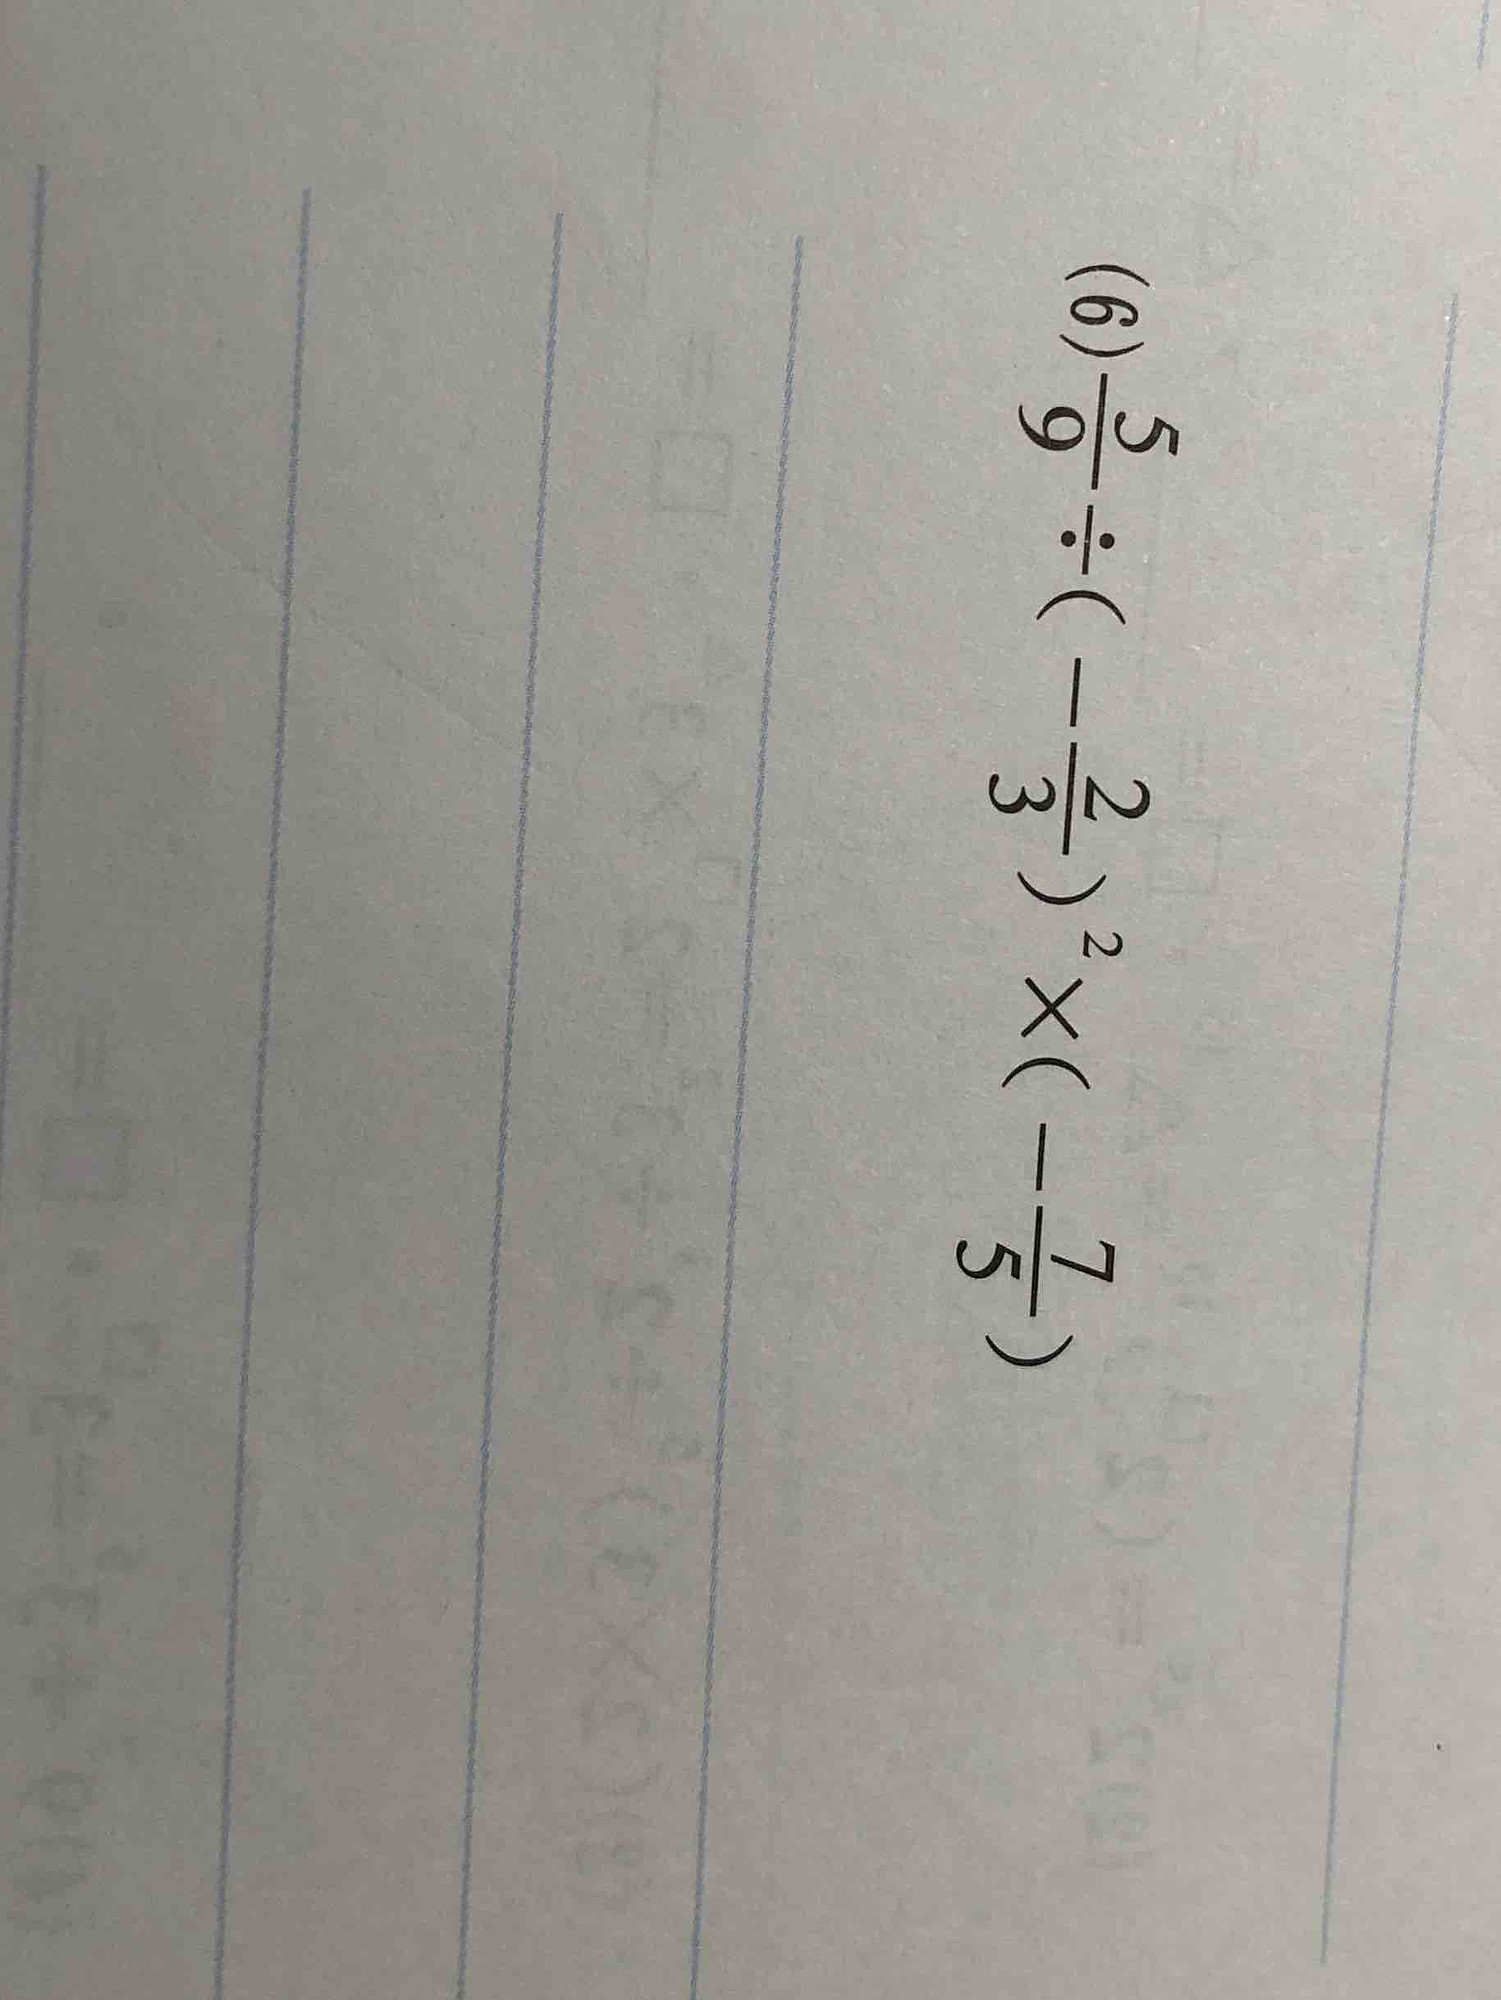 (6) 5/9 ÷ ( − 2/3 )² × ( − 7/5 )